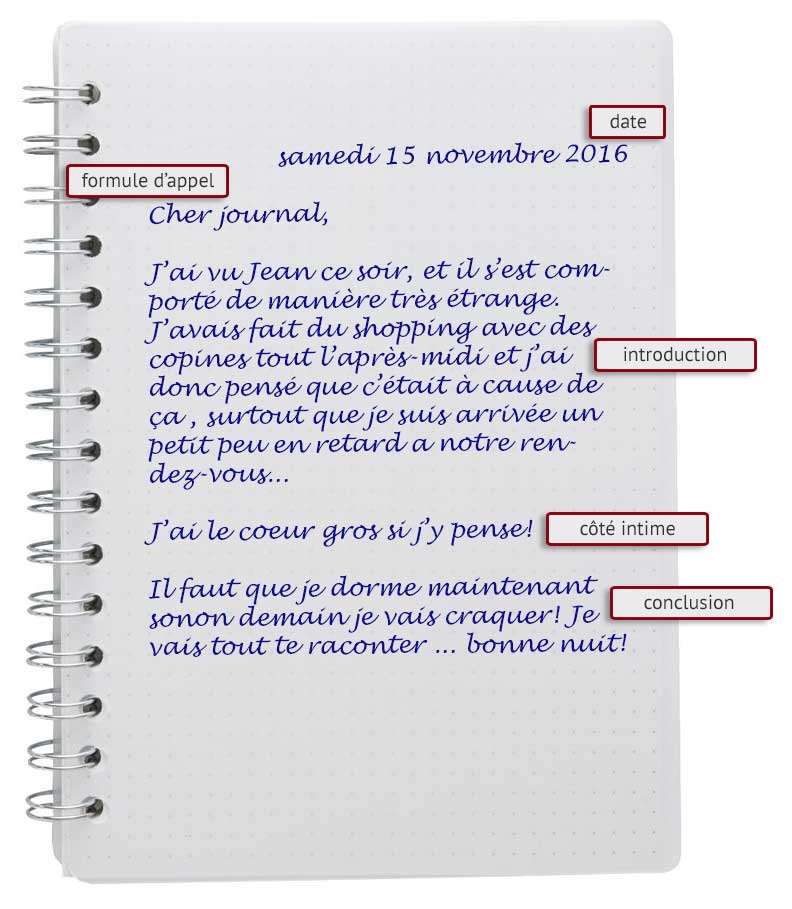 date
samedi 15 novembre 2016
formule d'appel
Cher journal,
J'ai vu Jean ce soir, et il s'est com-
porté de manière très étrange.
J'avais fait du shopping avec des
copines tout l'après-midi et j'ai
introduction
donc pensé que c'était à cause de
ça , surtout que je suis arrivée un
petit peu en retard a notre ren-
dez-vous...
J'ai le coeur gros si j'y pense!
côté intime
Il faut que je dorme maintenant
conclusion
sonon demain je vais craquer! Je
vais tout te raconter ... bonne nuit!